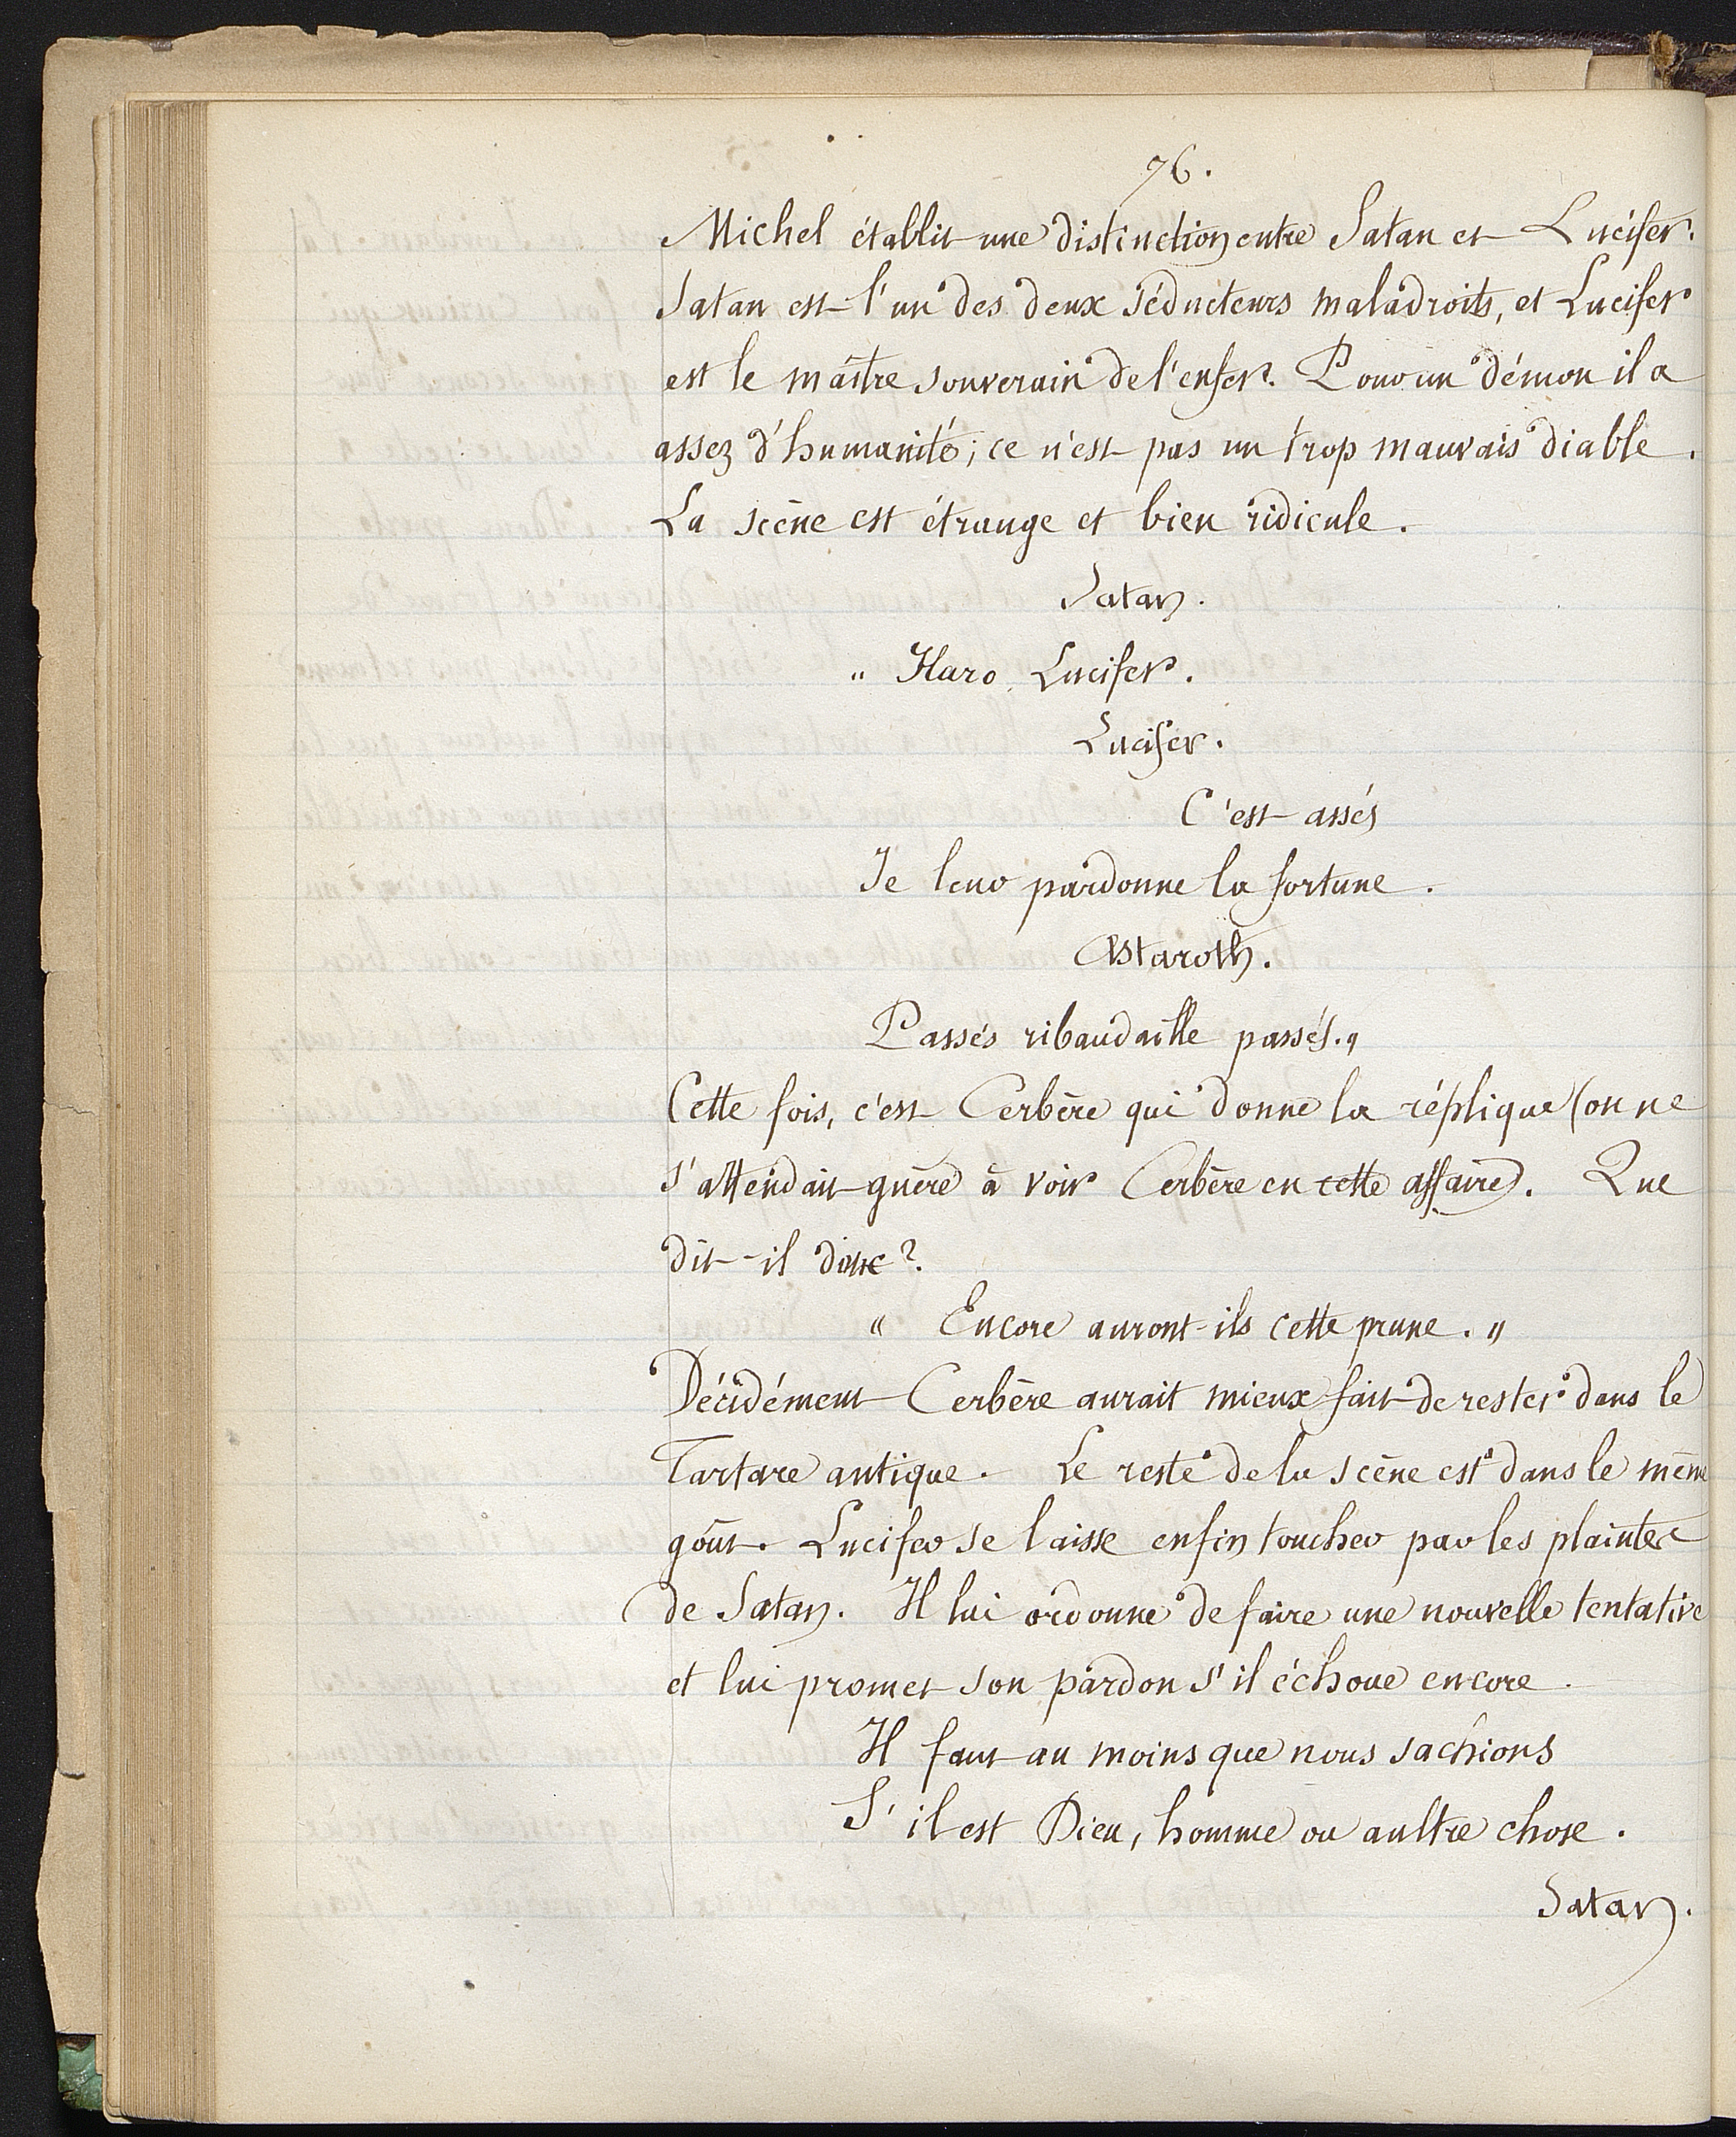 76.
Michel établit une distinction entre Satan et Lucifer.
Satan est l'un des deux séducteurs maladroits, et Lucifer
est le maître souverain de l'enfer. Pour un démon il a
assez d'humanité; ce n'est pas un trop mauvais diable.
La scène est étrange et bien ridicule.
Satan.
" Haro Lucifer.
Lucifer.
C'est assés
Je leur pardonne la fortune.
Astaroth.
Passés ribaudaille passés."
Cette fois, c'est Cerbère qui donne la réplique (on ne
s'attendait guère à voir Cerbère en cette affaire). Que
dit-il donc?
" Encore auront-ils cette prune. "
Décidément Cerbère aurait mieux fait de rester dans le
Tartare antique. Le reste de la scène est dans le même
goût. Lucifer se laisse enfin toucher par les plaintes
de Satan. Il lui ordonne de faire une nouvelle tentative
et lui promet son pardon s'il échoue encore.
Il faut au moins que nous sachions
S'il est Dieu, homme ou aultre chose.
Satan.